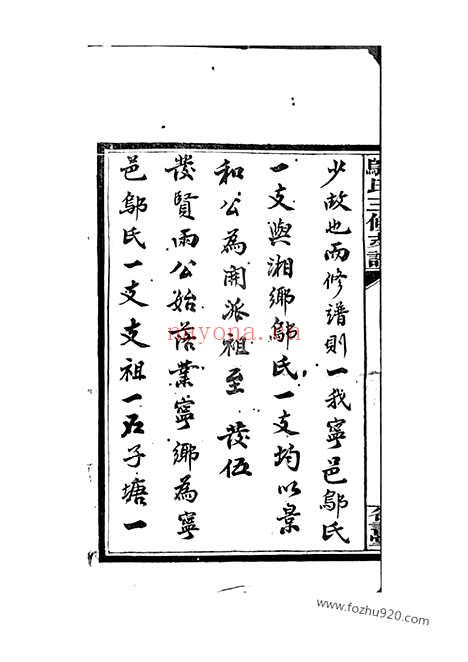 少故也而修譜則一我寧邑鄔氏
一支與湘鄉鄔氏一支均以景
和公為開派祖至 發伍
發賢兩公始落業寧鄉為寧
邑鄔氏一支支祖一石子塘一
鄔氏三修支譜
nayona.cn
www.fozhu920.com